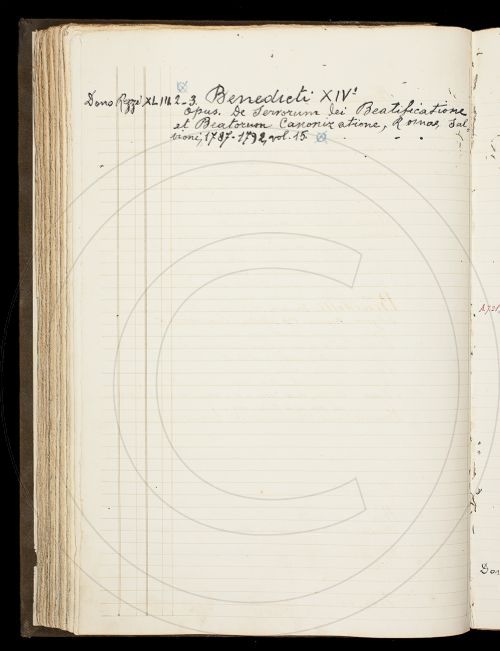 Dono Pezzi XLIII. 2-3. Benedicti XIVi
Opus. De Servorum Dei Beatificatione
et Beatorum Canonizatione, Romae, Sal-
vioni, 1787-1792, vol. 15